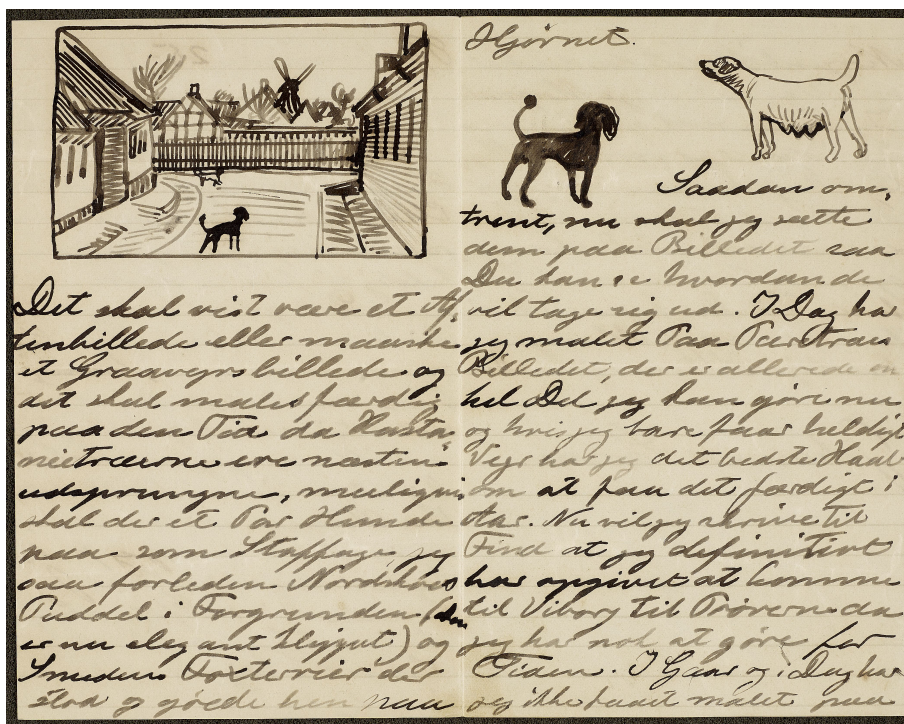 Det skal vist være et Af,
tenbillede eller maaske
et Graavejrsbillede og
det skal males færdig
paa den Tid da Kasta,
nietræerne ere næsten
udsprungne, muligvis
skal der et Par Hunde
paa som Staffage, jeg
saa forleden Nordskovs
Puddel i Forgrunden (den
er nu elegant klippet) og
Smedens Foxterrier der
stod og gøede hen paa
Hjørnet.
Saadan om,
trent, nu skal jeg sætte
dem paa Billedet saa
Du kan se hvordan de
vil tage sig ud. I Dag har
jeg malet paa Pæretræs
Billedet, der er allerede en
hel Del jeg kan gøre nu
og hvis jeg bare faar heldigt
Vejr har jeg det bedste Haab
om at faa det færdigt i
Aar. Nu vil jeg skrive til
Find at jeg definitivt
har opgivet at komme
til Viborg til Prøverne da
jeg har nok at gøre for
Tiden. I Gaar og i Dag har
jeg ikke kunnet malet paa